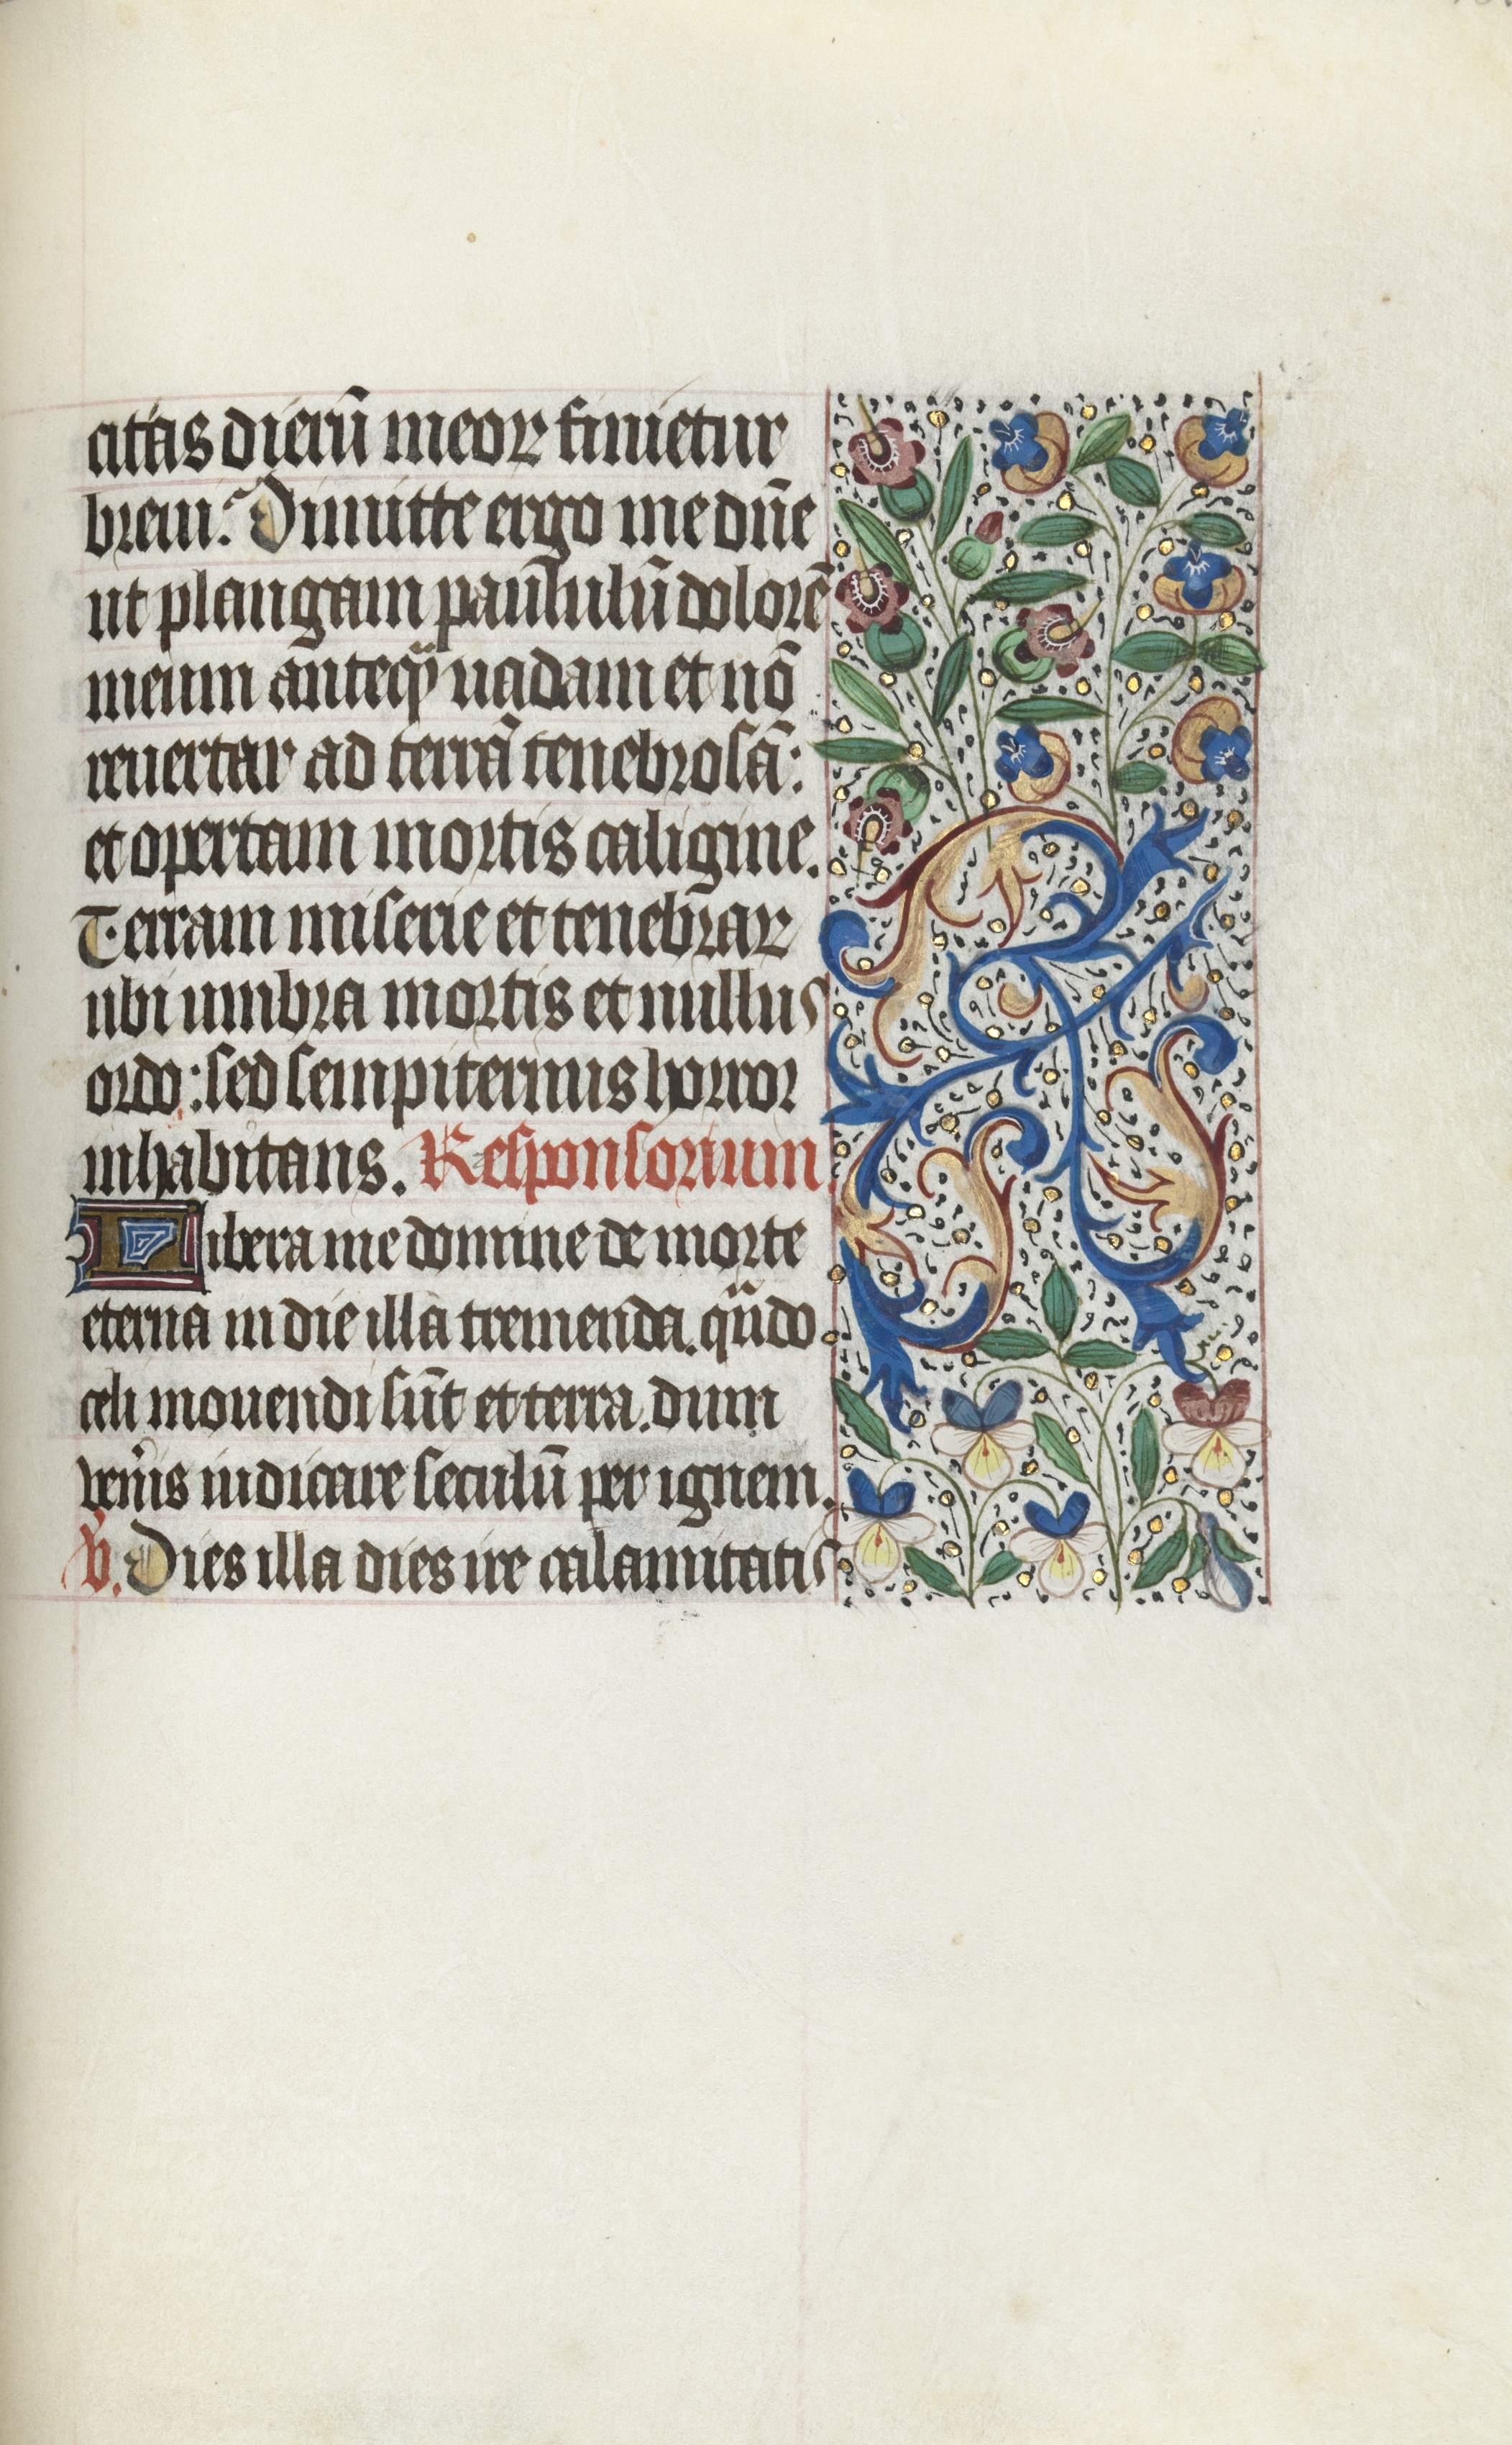 citas dierū meoꝝ finietur
breui? Dimitte ergo me dn̄e
ut plangam paululū dolorē
meum anteq̄ uadam et nō
reuertar ad terrā tenebrosā:
et opertam mortis caligine.
Terram miserie et tenebraꝝ
ubi umbra mortis et nullus
ordo: sed sempiternus horror
inhabitans. Responsorium.
Libera me domine de morte
eterna in die illa tremenda. qn̄do
celi mouendi sūt et terra. dum
ven̄is iudicare seculū per ignem.
V. Dies illa dies ire calamitatis